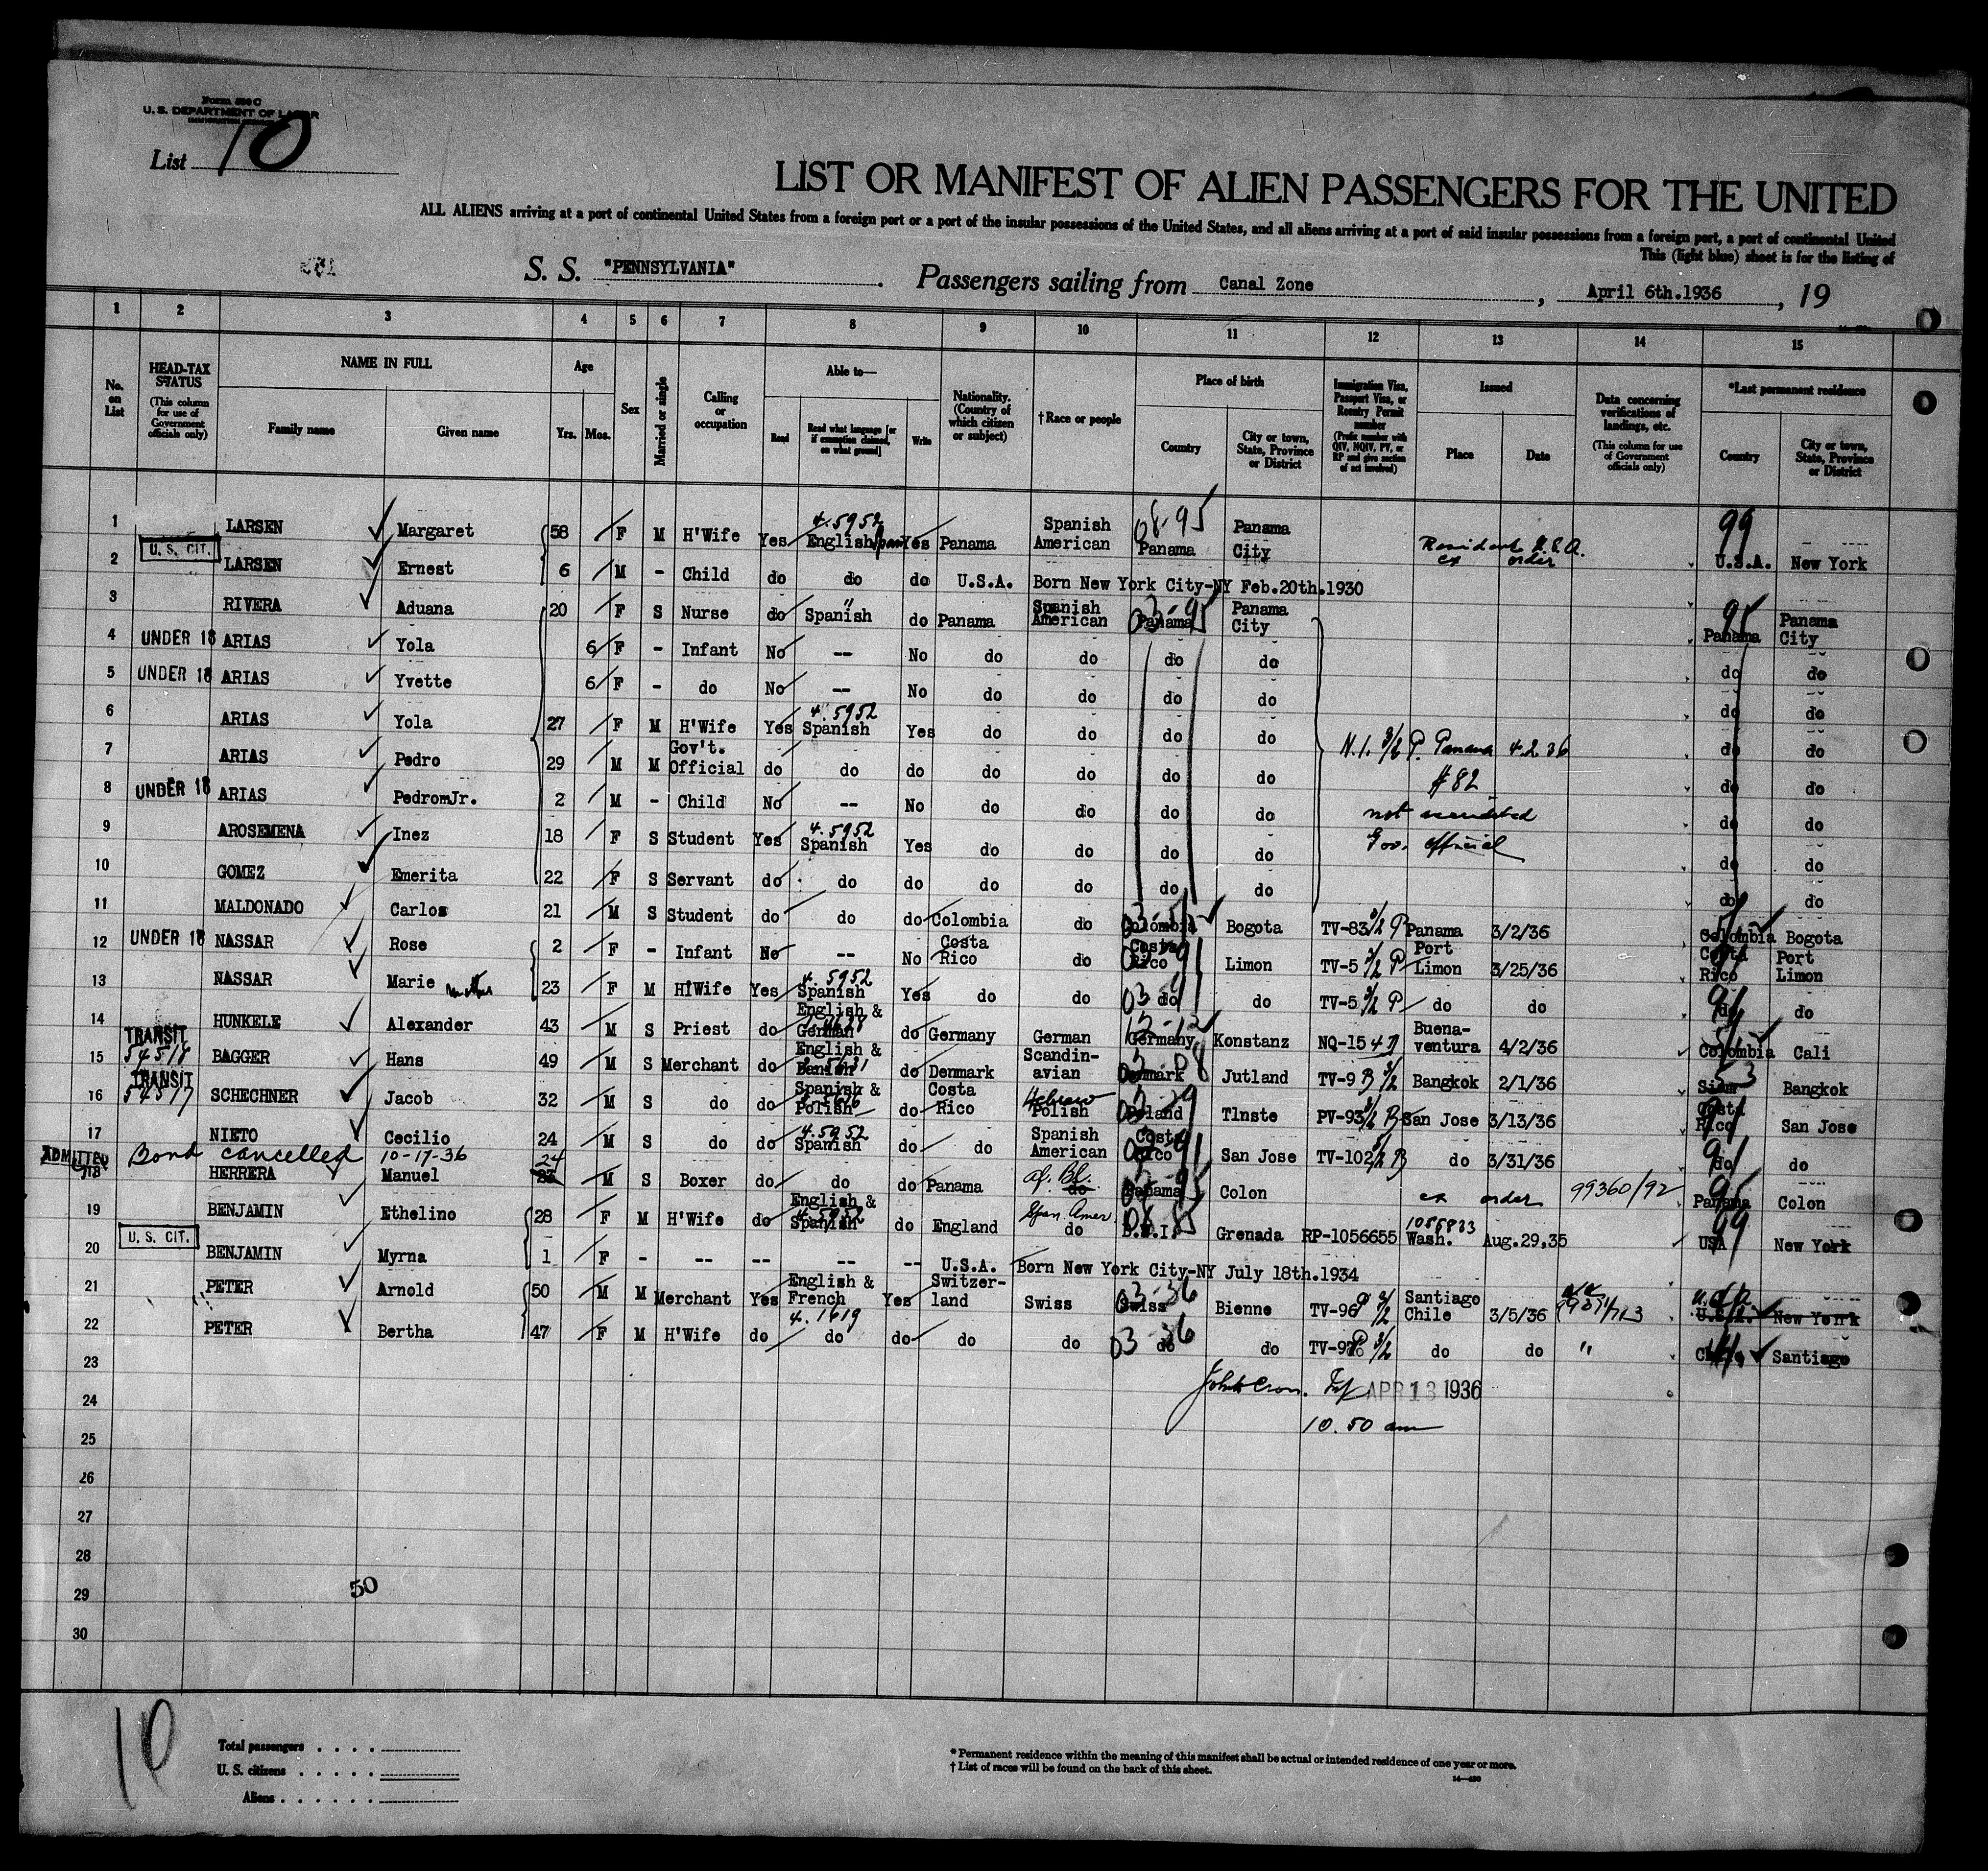 Form 500 C
U. S. DEPARTMENT OF LABOR
List 10
LIST OR MANIFEST OF ALIEN PASSENGERS FOR THE UNITED
ALL ALIENS arriving at a port of continental United States from a foreign port or a port of the insular possessions of the United States, and all aliens arriving at a port of said insular possessions from a foreign port, a port of continental United
This (light blue) sheet is for the listing of
S. S. "PENNSYLVANIA" . Passengers sailing from Canal Zone , April 6th.1936 , 19
1 2 3 4 5 6 7 8 9 10 11 12 13 14 15
No. on List
HEAD-TAX STATUS (This column for use of Government officials only)
NAME IN FULL Family name Given name
Age Yrs. Mos.
Sex
Married or single
Calling or occupation
Able to— Read Read what language [or if exemption claimed, on what ground] Write
Nationality. (Country of which citizen or subject)
†Race or people
Place of birth Country City or town, State, Province or District
Immigration Visa, Passport Visa, or Reentry Permit number (Prefix number with QIV, NQIV, PV, or RP and give section of act involved)
Issued Place Date
Data concerning verifications of landings, etc. (This column for use of Government officials only)
*Last permanent residence Country City or town, State, Province or District
1 LARSEN Margaret 58 F M H'Wife Yes 4.5952 English Yes Panama Spanish American 08-95 Panama Panama City Resident U.S.A. ex order 99 U.S.A. New York
2 U. S. CIT. LARSEN Ernest 6 M - Child do do do U.S.A. Born New York City-NY Feb.20th.1930
3 RIVERA Aduana 20 F S Nurse do Spanish do Panama Spanish American 03-95 Panama Panama City 95 Panama Panama City
4 UNDER 16 ARIAS Yola 6 F - Infant No -- No do do do do do do
5 UNDER 16 ARIAS Yvette 6 F - do No -- No do do do do do do
6 ARIAS Yola 27 F M H'Wife Yes 4.5952 Spanish Yes do do do do do do
7 ARIAS Pedro 29 M M Gov't. Official do do do do do do do N.I. 3/2 P. Panama 4.2.36 #82 do do
8 UNDER 16 ARIAS PedromJr. 2 M - Child No -- No do do do do not accredited do do
9 AROSEMENA Inez 18 F S Student Yes 4.5952 Spanish Yes do do do do Gov. official do do
10 GOMEZ Emerita 22 F S Servant do do do do do do do do do
11 MALDONADO Carlos 21 M S Student do do do Colombia do Colombia Bogota TV-83 3/2 P Panama 3/2/36 Colombia Bogota
12 UNDER 16 NASSAR Rose 2 F - Infant No -- No Costa Rico do Costa Rico Limon TV-5 3/2 P Port Limon 3/25/36 Costa Rico Port Limon
13 NASSAR Marie mother 23 F M H'Wife Yes 4.5952 Spanish Yes do do 03-91 do do TV-5 3/2 P do do 91 do do
14 HUNKELE Alexander 43 M S Priest do English & German do Germany German 12-12 Germany Konstanz NQ-15 Buena- ventura 4/2/36 Colombia Cali
15 TRANSIT 54518 BAGGER Hans 49 M S Merchant do English & Danish do Denmark Scandin- avian Denmark Jutland TV-9 3/2 Bangkok 2/1/36 Siam Bangkok
16 TRANSIT 54517 SCHECHNER Jacob 32 M S do do Spanish & Polish do Costa Rico Hebrew Polish Poland Tlnste PV-93 San Jose 3/13/36 Costa Rico San Jose
17 NIETO Cecilio 24 M S do do 4.5952 Spanish do do Spanish American Costa Rico San Jose TV-102 do 3/31/36 91 do do
ADMITTED Bond cancelled 10-17-36
18 HERRERA Manuel 24 23 M S Boxer do do do Panama Af. Bl. do Panama Colon ex order 99360/92 95 Panama Colon
19 BENJAMIN Ethelino 28 F M H'Wife do English & Spanish 4.5952 do England Span. Amer. do B.W.I. Grenada RP-1056655 1055833 Wash. Aug.29,35 99 USA New York
20 U. S. CIT. BENJAMIN Myrna 1 F - -- -- -- -- U.S.A. Born New York City-NY July 18th.1934
21 PETER Arnold 50 M M Merchant Yes English & French Yes Switzer- land Swiss 03-36 Swiss Bienne TV-96 3/2 Santiago Chile 3/5/36 U.S.A. New York
22 PETER Bertha 47 F M H'Wife do 4.1619 do do do do 03-36 do do TV-97 3/2 do do " Chile Santiago
23
24 APR 13 1936
25 10.50 am
26
27
28
29 50
30
10
Total passengers . . . .
U. S. citizens . . . . .
Aliens . . . . . .
* Permanent residence within the meaning of this manifest shall be actual or intended residence of one year or more.
† List of races will be found on the back of this sheet.